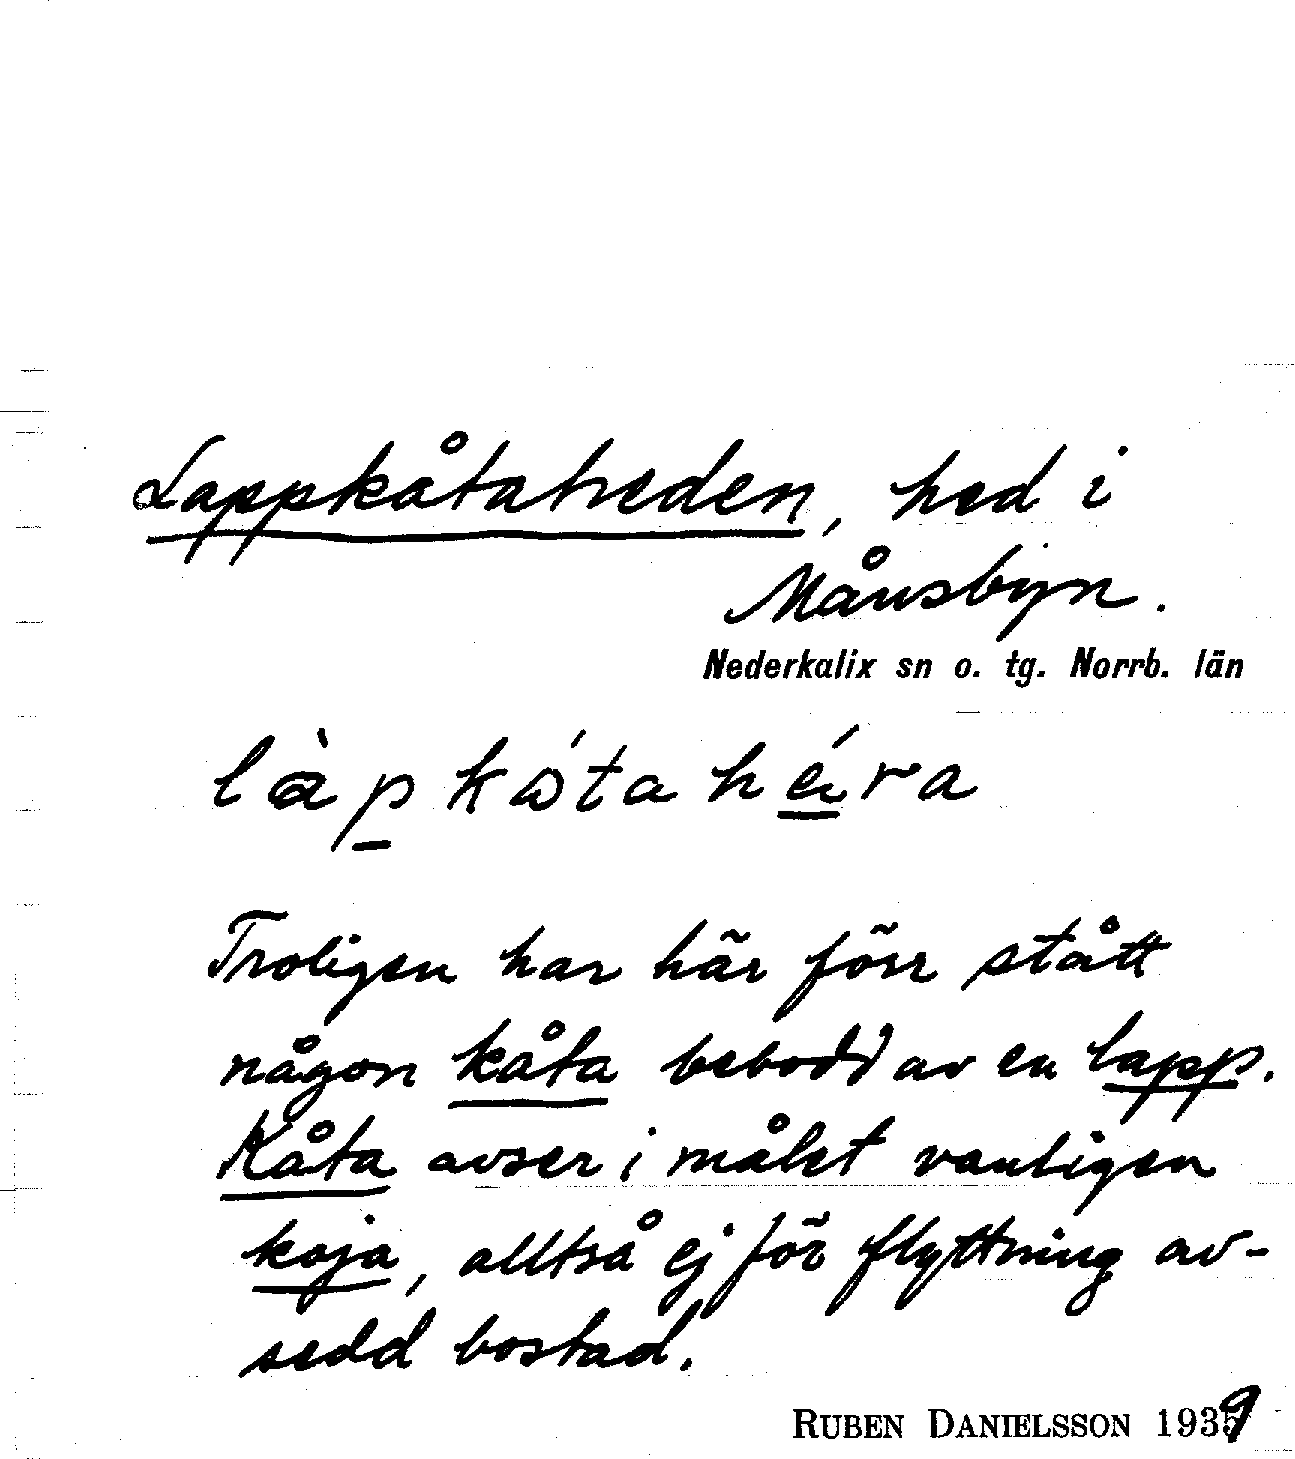 Lappkåtaheden, hed i
Månsbyn.
Nederkalix sn o. tg. Norrb. län
làpkåtahéra
Troligen har här förr stått
någon kåta bebodd av en lapp.
Kåta avser i målet vanligen
koja, alltså ej för flyttning av-
sedd bostad.
RUBEN DANIELSSON 1939